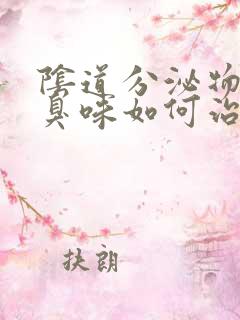 陰道分泌物
臭味如何治
扶朗